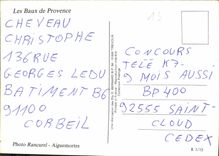 Les Baux de Provence
CHEVEAU
CHRISTOPHE
136 RUE
GEORGES LEDU
BATIMENT B6
91100
CORBEIL
Photo Rancurel - Aiguesmortes
CONCOURS
TELE K7-
9 MOIS AUSSI
BP 400
92555 SAINT-
CLOUD
CEDEX